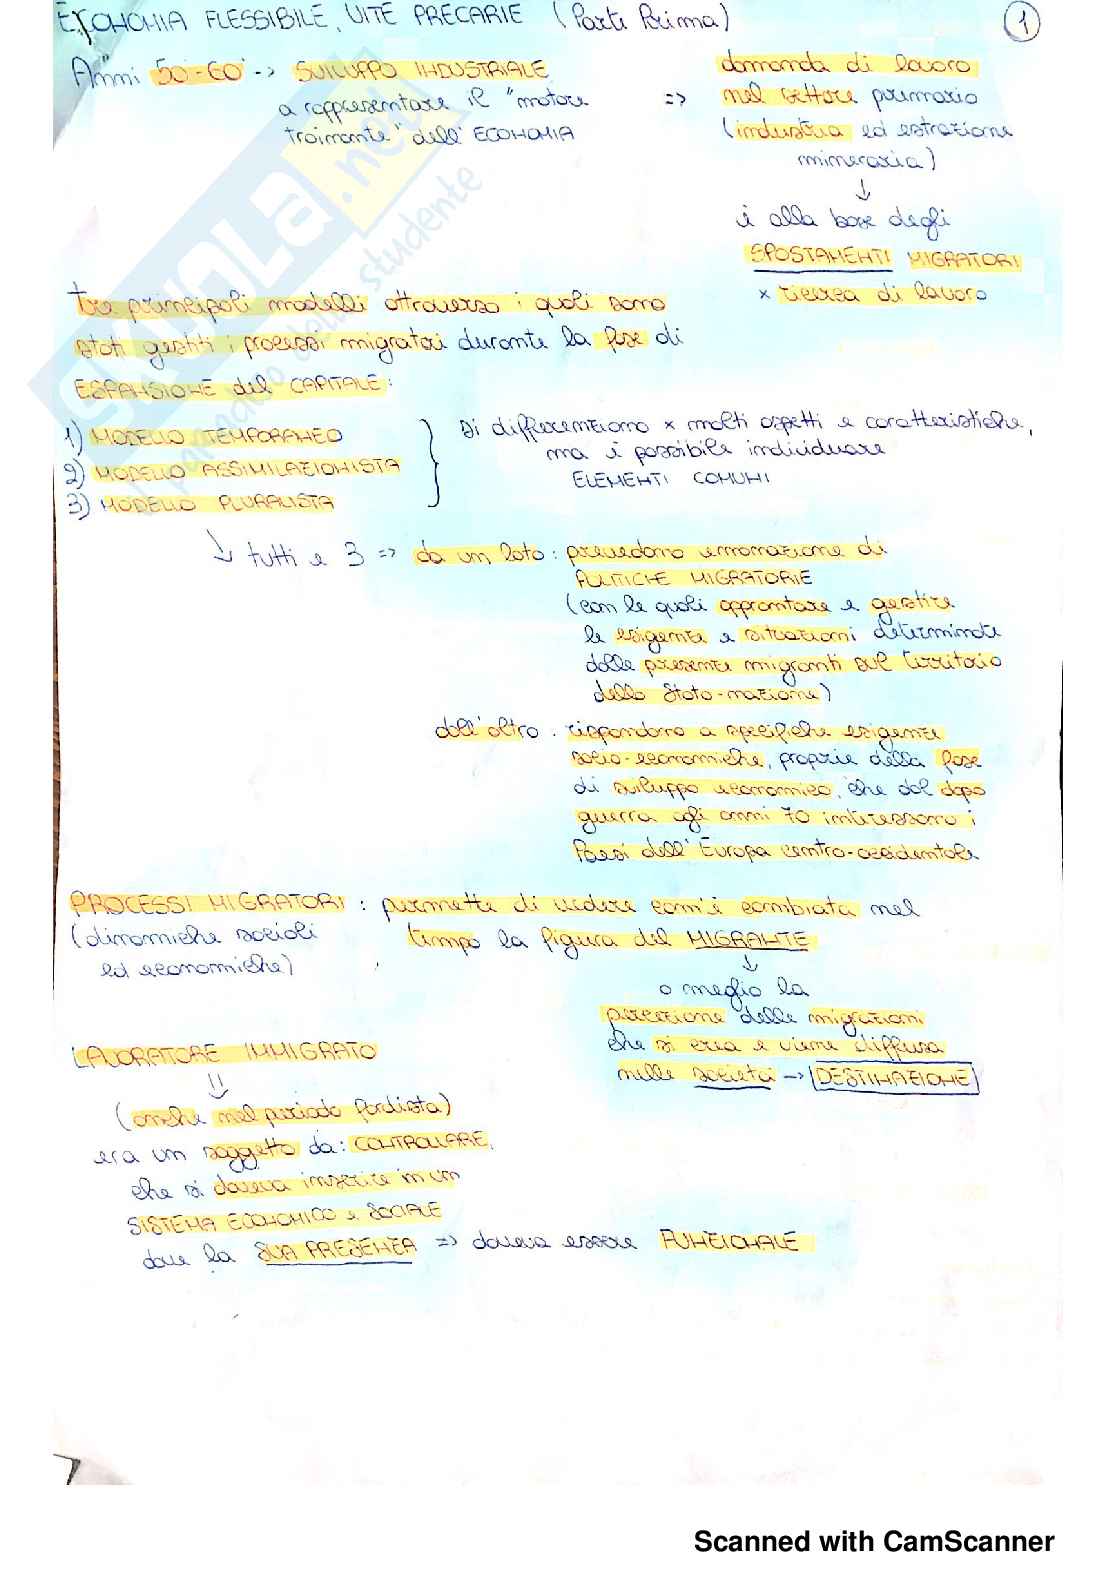 ECONOMIA FLESSIBILE, VITE PRECARIE (Parte Prima)
1
Anni 50'-60' -> SVILUPPO INDUSTRIALE
a rappresentare il "motore
trainante" dell'ECONOMIA
=> domanda di lavoro
nel settore primario
(industria ed estrazione
mineraria)
↓
è alla base degli
SPOSTAMENTI MIGRATORI
x ricerca di lavoro
tre principali modelli attraverso i quali sono
stati gestiti i processi migratori durante la fase di
ESPANSIONE del CAPITALE:
1) MODELLO TEMPORANEO
2) MODELLO ASSIMILAZIONISTA
3) MODELLO PLURALISTA
si differenziano x molti aspetti e caratteristiche,
ma è possibile individuare
ELEMENTI COMUNI
↓ tutti e 3 => da un lato: prevedono emanazione di
POLITICHE MIGRATORIE
(con le quali affrontare e gestire
le esigenze e situazioni determinate
dalle presenze migranti sul territorio
dello Stato-nazione)
dall'altro: rispondono a specifiche esigenze
socio-economiche, proprie della fase
di sviluppo economico, che dal dopo
guerra agli anni 70 interessano i
Paesi dell'Europa centro-occidentale
PROCESSI MIGRATORI: permette di vedere com'è cambiata nel
(dinamiche sociali tempo la figura del MIGRANTE
ed economiche)
↓
o meglio la
percezione delle migrazioni
che si crea e viene diffusa
nelle società -> DESTINAZIONE
LAVORATORE IMMIGRATO
⇓
(anche nel periodo fordista)
era un soggetto da: CONTROLLARE,
che si doveva inserire in un
SISTEMA ECONOMICO e SOCIALE
dove la SUA PRESENZA => doveva essere FUNZIONALE
SKUOLA.net
Scanned with CamScanner